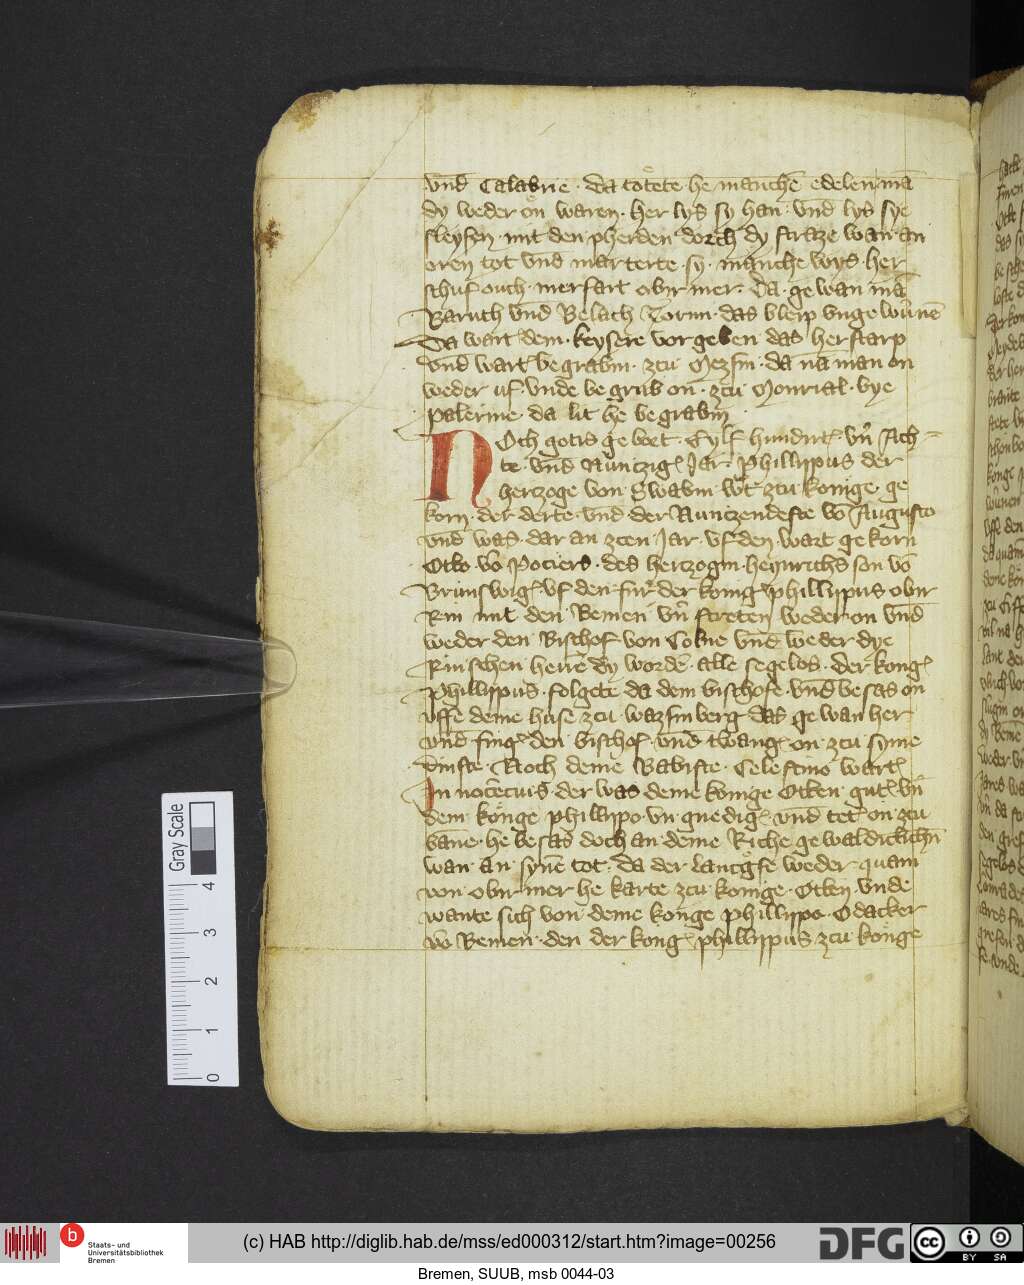 vnd Calabrie · da totete he manchē edelen mā
dy weder on waren · her lys sy han · vnd lys sye
sleyfen · mit den pherden dorch dy straze wan an
oren tot vnd marterte sy · manche wys · her
schuf ouch · merfart obir mer · Da · ge wan mā
Baruth vnd Belach Torun · das bleip vnge wūnē
Da wart dem · keysere vor geben das her starp
vnd wart begrabin · zcu · da nā man on
weder uf · vnde be grub on · zcu Monrial · bye
palerme da lit he be grabin
Noch gotis ge bort · Eylf hundirt vn̄ Ach-
te · vnd Nuntzig Jar · Phillippus der
hertzoge von Swabin wart zcu konige ge
korn · der derte · vnd der Nuntzendeste vō Augusto
vnd was · dar an zcen Jar · vf den wart ge korn
Otto · vō Pociers · des hertzogin heynrichs son vō
Brunswig · vf den fur der konig phillippus obir
Rin mit den Bemen vn̄ streten weder on vnd
weder den Bischof von Colne vnd we der dye
Rinschen herrē dy wordē · alle segelos · der konig
Phillippus · folgete da dem bischofe · vnd be sas on
vffe deme huse zcu · wazsinberg das ge wan her
vnd fing den bischof · vnd twang on · zcu syme
dinste · Noch deme Babiste · Celestino wart
Innocecius · der was deme konige Otten gut vn̄
dem konige phillippo · vn gnedig · vnd tet on zcu
banne · he be sas doch an deme Riche ge waldiclichin
wan an synē tot · da der lancgrefe weder quam
von obir mer he karte zcu konige · Otten vnde
wante sich von deme konige phillippo · Odacker
vō Bemen · den der konig phillippus zcu konige
Gray Scale
4
3
2
1
0
b
Staats- und
Universitätsbibliothek
Bremen
(c) HAB http://diglib.hab.de/mss/ed000312/start.htm?image=00256
DFG
cc
BY SA
Bremen, SUUB, msb 0044-03